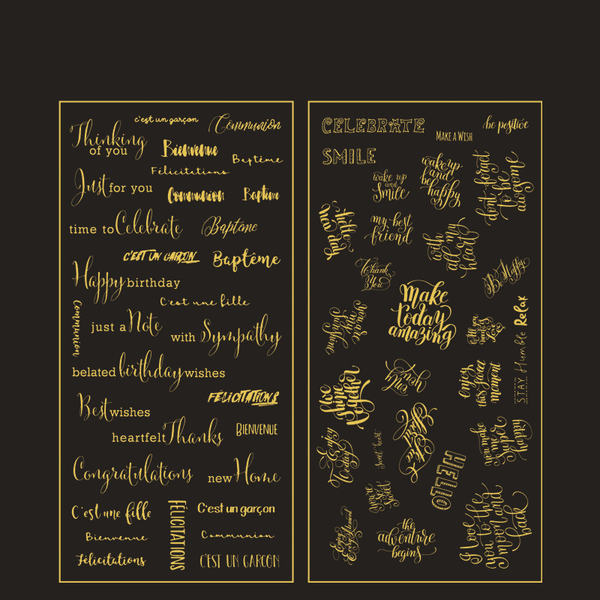 c'est un garçon
Communion
Thinking
of you
Bienvenue
Baptême
Félicitations
Just for you
Communion
Baptême
time to Celebrate
Baptême
C'EST UN GARÇON
Baptême
Happy birthday
C'est une fille
Communion
just a Note
with Sympathy
belated birthday wishes
FÉLICITATIONS
Best wishes
BIENVENUE
heartfelt Thanks
Congratulations
new Home
C'est une fille
FÉLICITATIONS
C'est un garçon
Bienvenue
Communion
Félicitations
C'EST UN GARÇON
CELEBRATE
MAKE A WISH
be positive
SMILE
wake up
and
Smile
wake up
and
be
happy
don't forget
to be
awesome
happy
new day
my best
friend
with
all my
heart
Thank
You
Be Happy
Make
today
amazing
STAY Humble Relax
enjoy
this sweet
moment
shine
together
you make
me
super
happy
HELLO
enjoy
today
sweet heart
you're
sweet
the
adventure
begins
I love
you to the
moon and
back